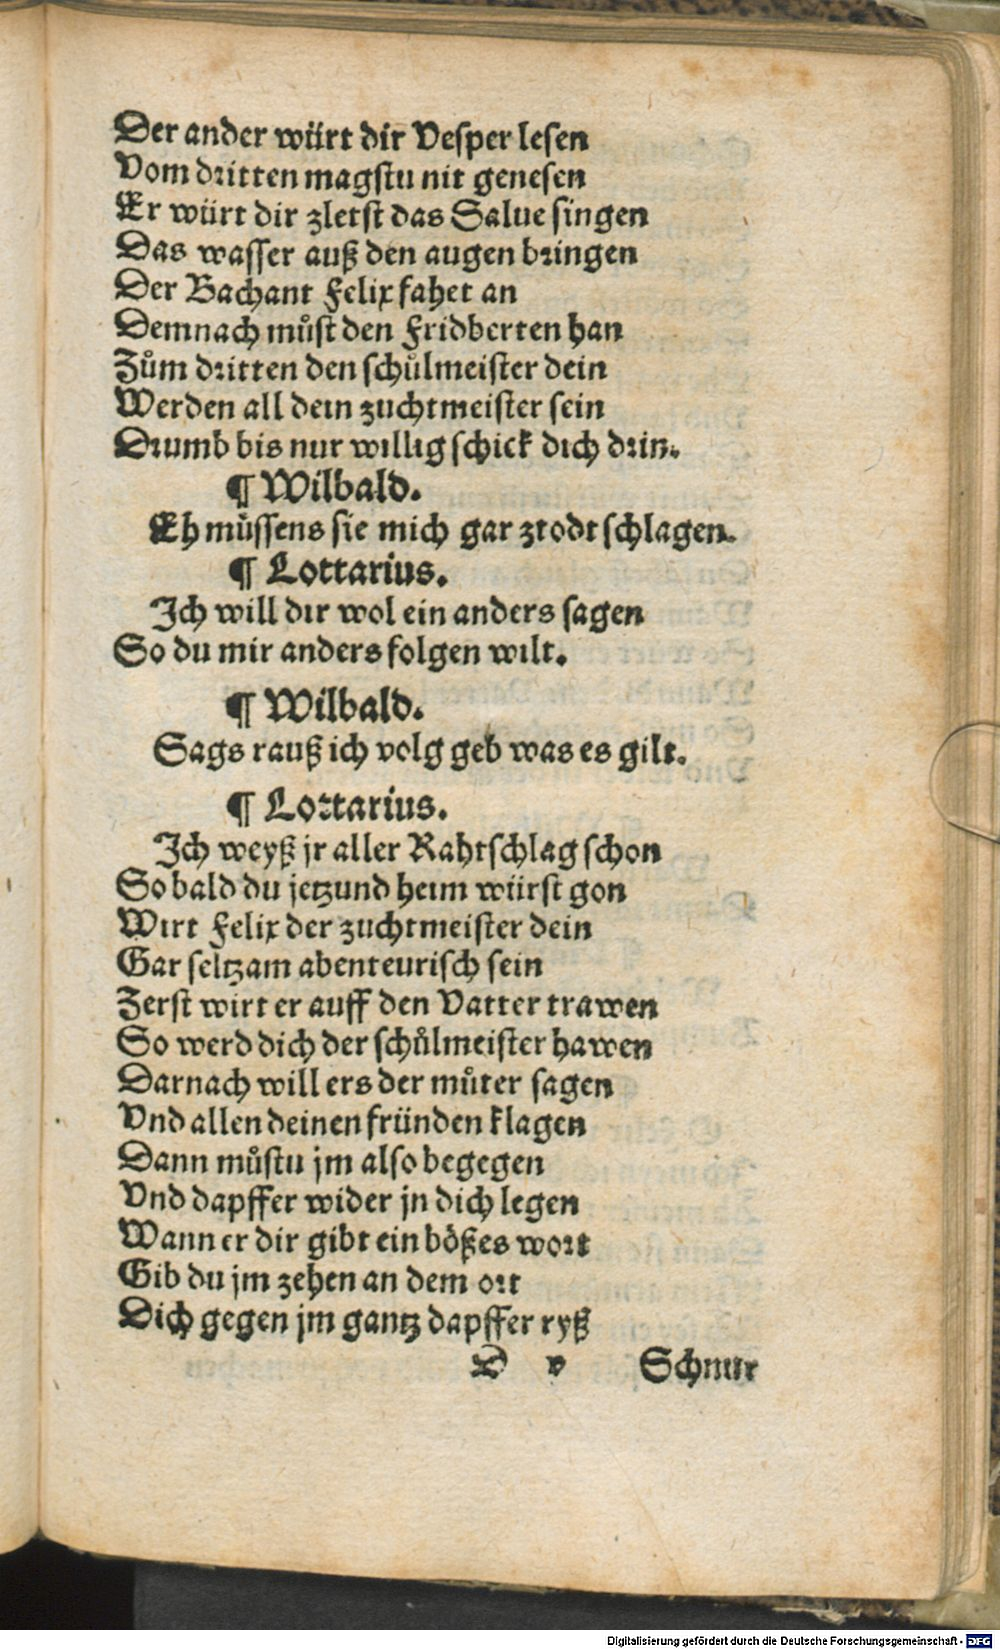 Der ander würt dir Vesper lesen
Vom dritten magstu nit genesen
Er würt dir zletst das Salue singen
Das wasser auß den augen bringen
Der Bachant Felix fahet an
Demnach můst den Fridberten han
Zům dritten den schůlmeister dein
Werden all dein zuchtmeister sein
Drumb bis nur willig schick dich drin.
¶ Wilbald.
Eh müssens sie mich gar ztodt schlagen.
¶ Lottarius.
Ich will dir wol ein anders sagen
So du mir anders folgen wilt.
¶ Wilbald.
Sags rauß ich volg geb was es gilt.
¶ Lottarius.
Ich weyß jr aller Rahtschlag schon
So bald du jetzund heim würst gon
Wirt Felix der zuchtmeister dein
Gar seltzam abenteurisch sein
Zerst wirt er auff den Vatter trawen
So werd dich der schůlmeister hawen
Darnach will ers der můter sagen
Vnd allen deinen fründen klagen
Dann můstu jm also begegen
Vnd dapffer wider jn dich legen
Wann er dir gibt ein bößes wort
Gib du jm zehen an dem ort
Dich gegen jm gantz dapffer ryß
D v Schnur
Digitalisierung gefördert durch die Deutsche Forschungsgemeinschaft - DFG